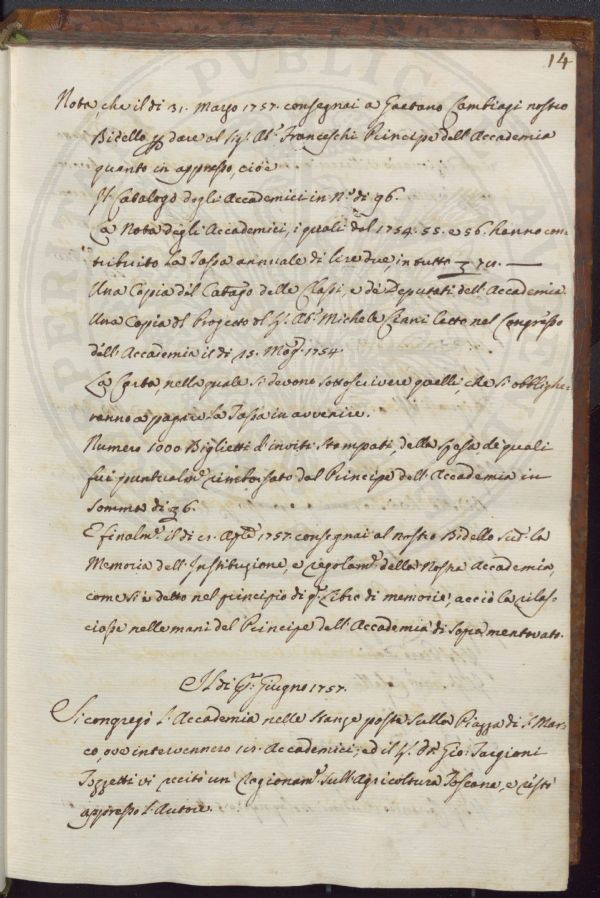 14
Nota, che il di 31. Marzo 1757. consegnai a Gaetano Cambiagi nostro
Bidello p dare al Sig.r Ab.e Franceschi Principe dell'Accademia
quanto in appresso, cioè
Il Catalogo degli Accademici in N.o di 96.
La Nota degli Accademici, i quali del 1754. 55. e 56. hanno con-
tribuito la Tassa annuale di lire due, in tutto
Una Copia del Catalogo delle Classi, e de' Deputati dell'Accademia.
Una Copia del Progetto del S.r Ab.e Michele letto nel Congresso
dell'Accademia il di 15. Mag.o 1754.
La Carta, nella quale si devono sottoscrivere quelli, che si obblighe-
ranno a pagare la Tassa in avvenire.
Numero 1000 Biglietti d'inviti stampati, della spesa de' quali
fui puntualm.e rimborsato dal Principe dell'Accademia in
somma di 36.
E finalm.e il di Ap.le 1757. consegnai al nostro Bidello sud.o la
Memoria dell'Instituzione, e regolam.o della Nostra Accademia,
come si è detto nel principio di q.o Libro di memorie, acciò la rilas-
ciasse nelle mani del Principe dell'Accademia di sopra mentovato.
Il di Giugno 1757.
Si congregò l'Accademia nelle stanze poste sulla Piazza di S. Mar-
co, ove intervennero Accademici, ed il S.r D.r Gio: Targioni
Tozzetti vi recitò un Ragionam.o sull'Agricoltura Toscana, e restò
appresso l'Autore.
PUBLICAE